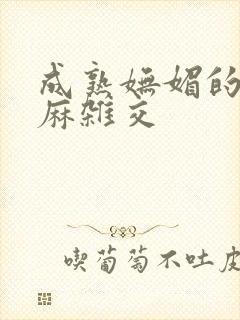 成熟妩媚的
麻雑交
喫葡萄不吐皮